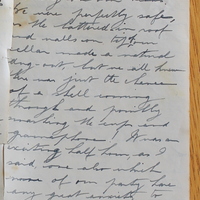 We were perfectly safe,
as the battered in roof
and walls on top of our
cellar made a natural
dug-out, but we all knew
there was just the chance
of a shell coming
through and possibly
smashing the lamp and
gramophone! It was an
exciting half hour, as I
said, one also which
none of our party have
any great anxiety to